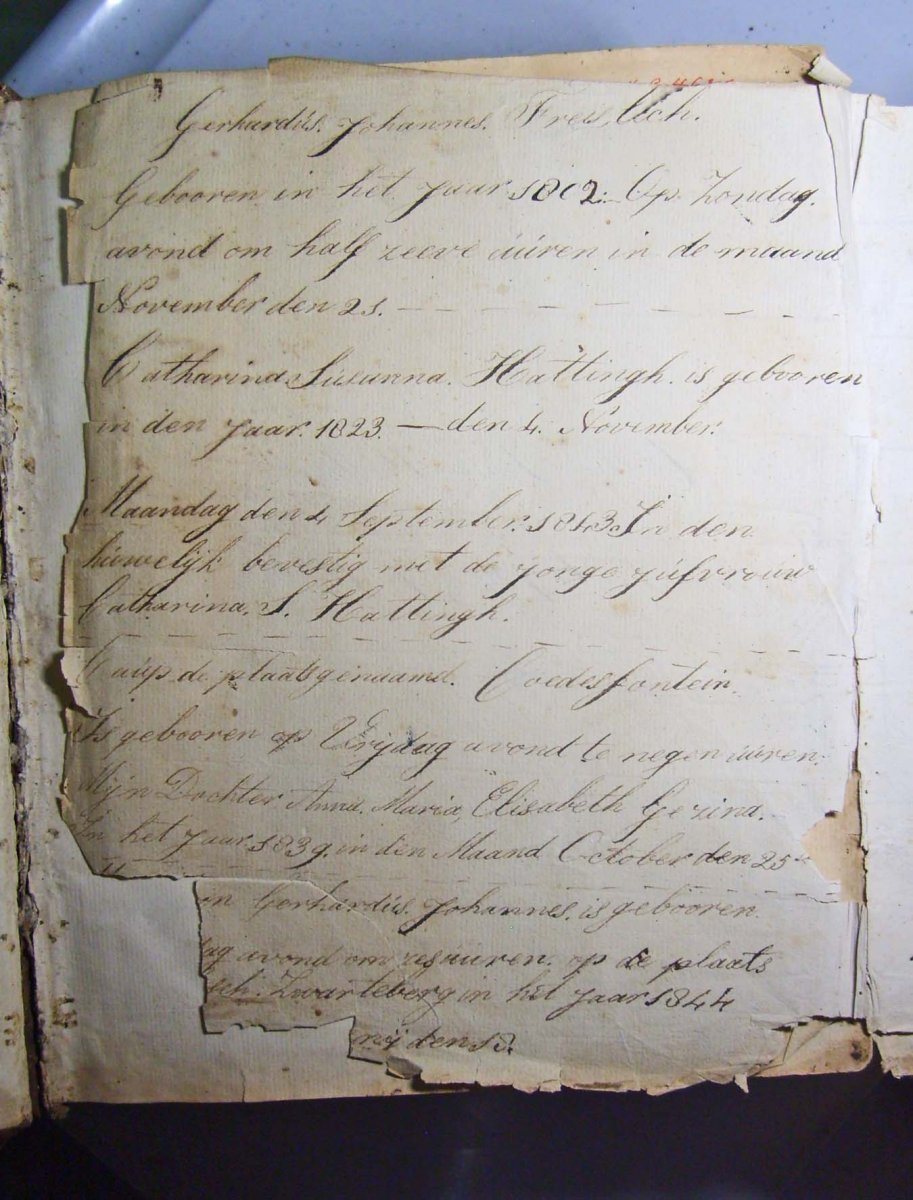 Gerhardús. Johannes. Freislich.
Gebooren in het Jaar 1802. Op Zondag.
avond om half zeeve úúren in de maand
November den 21.
Catharina Súsunna. Hattingh. is gebooren
in den Jaar. 1823. — den 4. November.
Maandag den 4 September. 1843. In den
húwelijk bevestig met de jonge júfvrouw
Catharina. S. Hattingh.
op de plaats genaamd. Coedesfontein.
Is gebooren op Vrijdag avond te negen úúren.
Mijn Dochter Anna. Maria, Elisabeth Gezina.
In het Jaar 1839. in den Maand October den 25
in Gerhardús. Johannes. is gebooren.
ag avond om úúren. op de plaats
sch. Zwarteberg in het Jaar 1844
den 18.